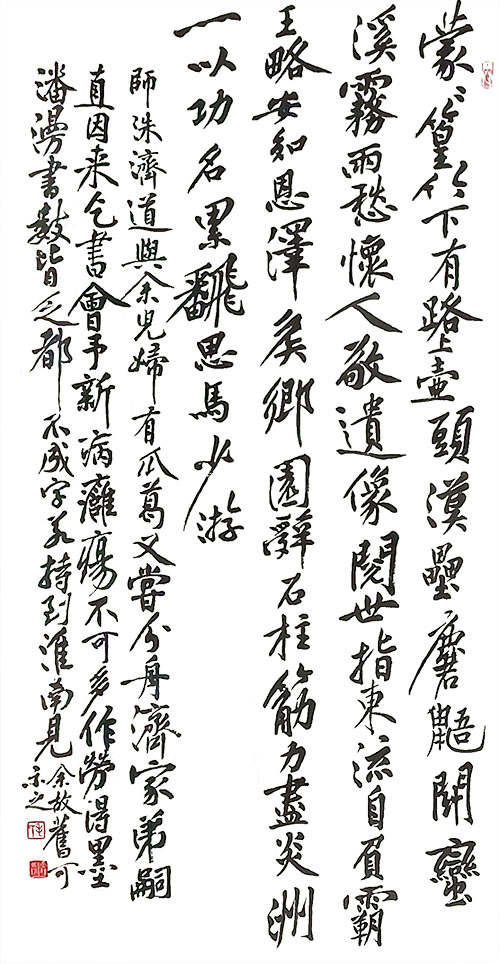 蒙〻篁竹下有路上壺頭漢壘麏鼯鬪蠻
溪霧雨愁懷人敬遺像閱世指東流自負霸
王略安知恩澤侯鄉園辭石柱筋力盡炎洲
一以功名累飜思馬少游
師洙濟道與余兒婦有瓜葛又嘗分舟濟家弟嗣
直因来乞書會予新病癰瘍不可多作勞得墨
潘漫書數皆乏都不成字若持到淮南見余故舊可
示之